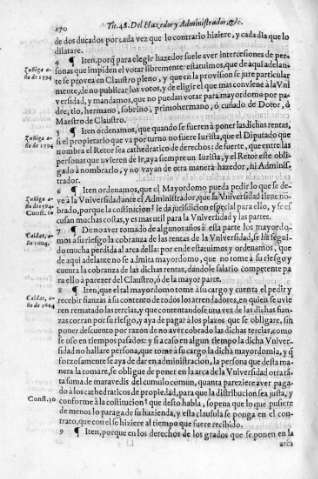 270 Tit. 48. Del Hazedor y Administrador, &c.
de dos ducados por cada vez que lo contrario hiziere, y cada dia que lo
dilatare.
4 ¶ Iten, porq̃ para elegir hazedor suele aver intercesiones de per-
Zuñiga a-
ño de 1594
sonas que impiden el votar libremente: estatuimos, que de aqui adelan-
te se provea en Claustro pleno, y que en la provision se jure particular
mente, de no publicar los votos, y de eligir el que mas conviene à la Vni
versidad, y mandamos, que no puedan votar para mayordomo por pa-
dre, tio, hermano, sobrino, primo hermano, ò cuñado de Dotor, ò
Maestro de Claustro.
5 ¶ Iten ordenamos, que quando se fueren à poner las dichas rentas,
Zuñiga a-
ño de 1594
si el propietario que va por turno no fuere Iurista, que el Diputado que
nombra el Retor sea cathedratico de derechos: de fuerte, que entre las
personas que uvieren de ir, aya siempre un Iurista, y el Retor este obli-
gado à nombrarlo, y no vayan de otra manera hazedor, ni Adminis-
trador.
6 ¶ Iten ordenamos, que el Mayordomo pueda pedir lo que se de-
Zuñiga a-
ño de
ve à la Vniversidad ante el Administrador, que la Vniversidad tiene no-
brado, porque la costitucion le da jurisdicion especial para ello, y es co
cosas muchas costas, y es mas util para la Vniversidad y las partes.
7 ¶ De no aver tomado de algunos años à esta parte los mayordo-
Caldas, a-
ño
mos a su riesgo la cobranza de las rentas de la Vniversidad, se ha segui-
do mucha perdida al arca della: por ende estatuimos y ordenamos, que
de aqui adelante no se admita mayordomo, que no tome à su riesgo y
cuenta la cobranza de las dichas rentas, dandole salario competente pa
ra ello à parecer del Claustro, ò de la mayor parte.
8 ¶ Iten, que el tal mayordomo tome à su cargo y cuenta el pedir y
Caldas, a-
ño de 1604
recebir fianzas à su contento de todos los arrendadores, en quien se uvie
ren rematado las tercias, y que contentandose una vez de las dichas fian-
zas cerran por su riesgo, y aya de pagar à los plazos que se obligare, sin
poner descuento por razon de no aver cobrado las dichas tercias, como
se uso en tiempos pasados: y si a caso en algun tiempo la dicha Vniver
sidad no hallare persona, que tome à su cargo la dicha mayordomia, y q̃
forzosamente se aya de dar en administracion, la persona que desta ma-
nera la tomare, se obligue de poner en la arca de la Vniversidad otra tã-
ta suma de maravedis del cumulo comun, quanta pareziere aver paga-
do à los cathedraticos de propiedad, para que la distribucion sea justa, y
Const. 30
conforme à la costitucion que desto habla, so pena que lo que pusiere
de menos lo paga de su hazienda, y esta clausula se ponga en el con-
trato, que con el se hiziere al tiempo que fuere recibido.
9 ¶ Iten, porque en los derechos de los grados que se ponen en la
arca